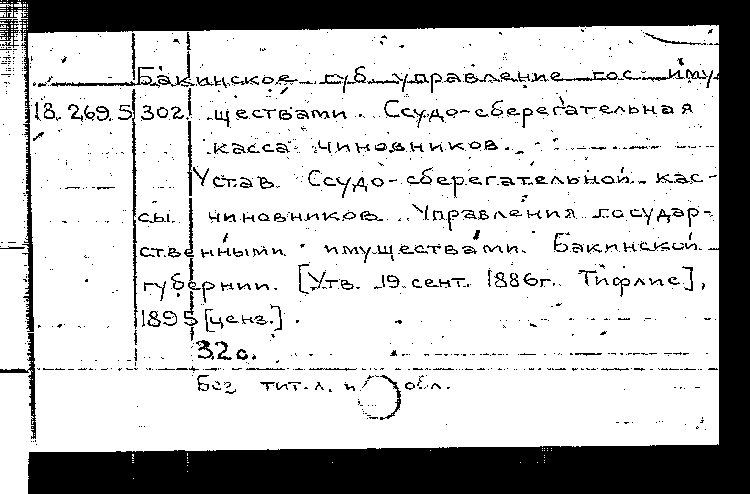 Бакинское губ. управление гос. иму-
18.269.5.302 ществами. Ссудо-сберегательная
касса чиновников.
Устав Ссудо-сберегательной кас-
сы чиновников Управления государ-
ственными имуществами Бакинской
губернии. [Утв. 19 сент. 1886г. Тифлис],
1895 [ценз.].
32 с.
Без тит. л. и обл.